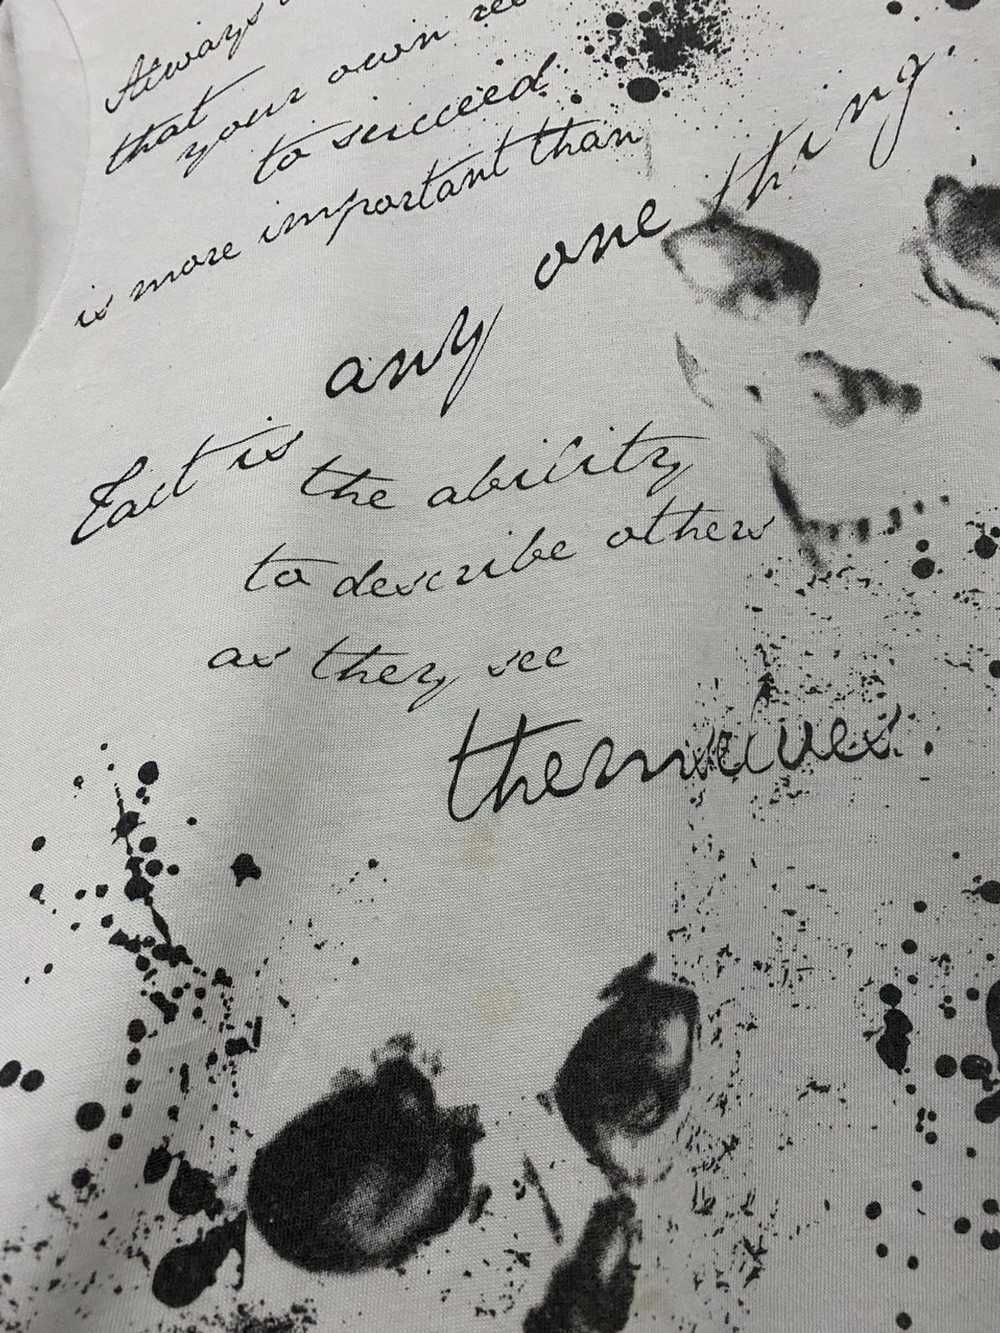 Always
that your own
to succeed
is more important than
any one thing.
Tact is
the ability
to describe others
as they see
themselves.